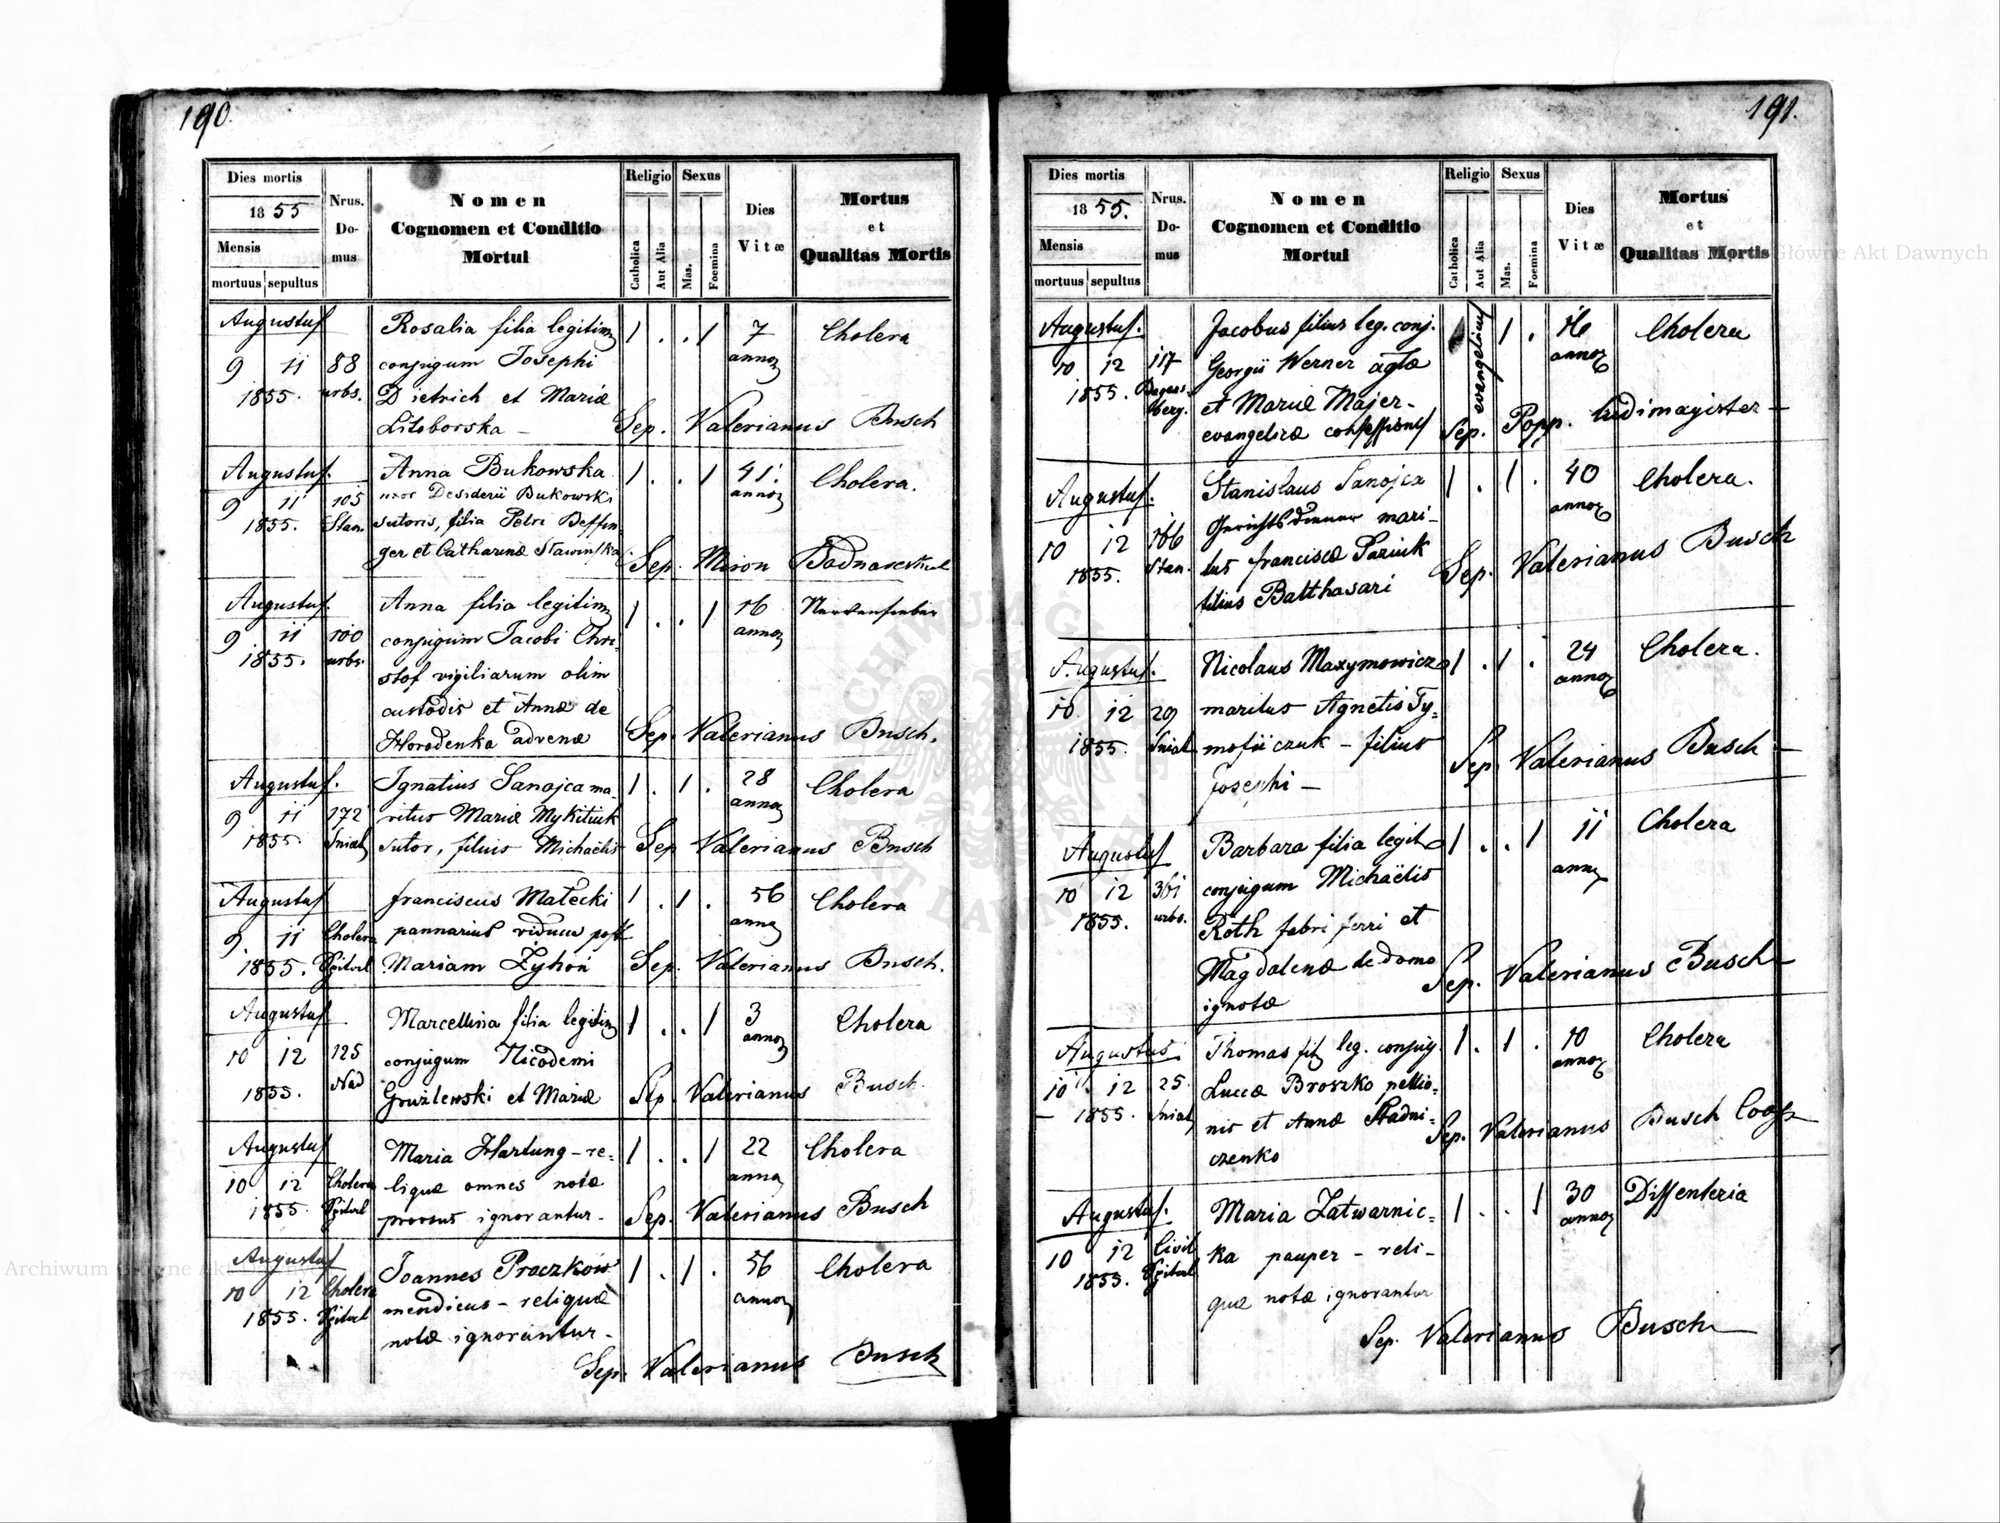 190.
Dies mortis
1855
Mensis
mortuus sepultus
Nrus. Do- mus
Nomen
Cognomen et Conditio
Mortui
Religio
Catholica
Aut Alia
Sexus
Mas.
Foemina
Dies
Vitæ
Mortus
et
Qualitas Mortis
Augustus Rosalia filia legitim 1 . . 1 7 Cholera
9 11 88 conjugum Josephi annor
1855. urbs. Dietrich et Mariæ
Litoborska – Sep. Valerianus Busch
Augustus. Anna Bukowska 1 . . 1 41. Cholera.
9 11 105 uxor Desiderii Bukowski annor
1855. Stan. sutoris, filia Petri Deffin-
ger et Catharinæ Slawinska. Sep. Miron Bodnarestul
Augustus. Anna filia legitim 1 . . 1 16 Nervenfieber
9 11 100 conjugum Jacobi Chri- annor
1855. urbs. stof vigiliarum olim
custodis et Annæ de
Horodenka advenæ Sep. Valerianus Busch.
Augustus. Ignatius Sanojca ma- 1 . 1 . 28 Cholera
9 11 172 ritus Mariæ Mykitiuk annor
1855. Sniat sutor, filius Michaëlis Sep Valerianus Busch
Augustus franciscus Matecki 1 . 1 . 56 Cholera
9. 11 Cholera pannarius viduus post annor
1855. Spital Mariam Zyhoń Sep. Valerianus Busch.
Augustus Marcellina filia legitim 1 . . 1 3 Cholera
10 12 125 conjugum Nicodemi annor
1855. Nad Gruzlewski et Mariæ Sep. Valerianus Busch.
Augustus Maria Hartung – re= 1 . . 1 22 Cholera
10 12 Cholera liquæ omnes notæ annor
1855. Spital prorsus ignorantur – Sep. Valerianus Busch
Augustus Joannes Praczków 1 . 1 . 56 Cholera
10 12 Cholera mendicus – reliquæ annor
1855. Spital notæ ignorantur –
Sep. Valerianus Busch
191.
Dies mortis
1855.
Mensis
mortuus sepultus
Nrus. Do- mus
Nomen
Cognomen et Conditio
Mortui
Religio
Catholica
Aut Alia
Sexus
Mas.
Foemina
Dies
Vitæ
Mortus
et
Qualitas Mortis
Augustus. Jacobus filius leg. conj. evangelicus 1 . 16 Cholera
10 12 117 Georgii Werner aglæ annor
1855. Bagens- berg. et Mariæ Majer –
evangelicæ confessionis Sep. Popp. ludimagister –
Augustus. Stanislaus Sanojca 1 . 1 . 40 Cholera.
10 12 166 Gerichtsdiener mari- annor
1855. Stan. tus franciscæ Paziuk
filius Balthasari Sep. Valerianus Busch
Augustus. Nicolaus Maxymowicz 1 . 1 . 24 Cholera.
10. 12 29 maritus Agnetis Ty= annor
1855. Sniat mofiiczuk – filius
Josephi – Sep. Valerianus Busch –
Augustus Barbara filia legit 1 . . 1 11 Cholera
10 12 361 conjugum Michaëlis annor
1855. urbs. Roth fabri ferri et
Magdalenæ de domo
ignotæ Sep. Valerianus Busch
Augustus Thomas fil leg. conjug. 1 . 1 . 10 Cholera
10 12 25. Lucæ Broszko pellio- annor
1855. Sniat nis et Annæ Stadni-
czenko Sep. Valerianus Busch Coop
Augustus. Maria Zatwarnic= 1 . . 1 30 Dissenteria
10 12 Civil ka pauper – reli- annor
1855. Spital quæ notæ ignorantur
Sep. Valerianus Busch
Archiwum Główne Akt Dawnych